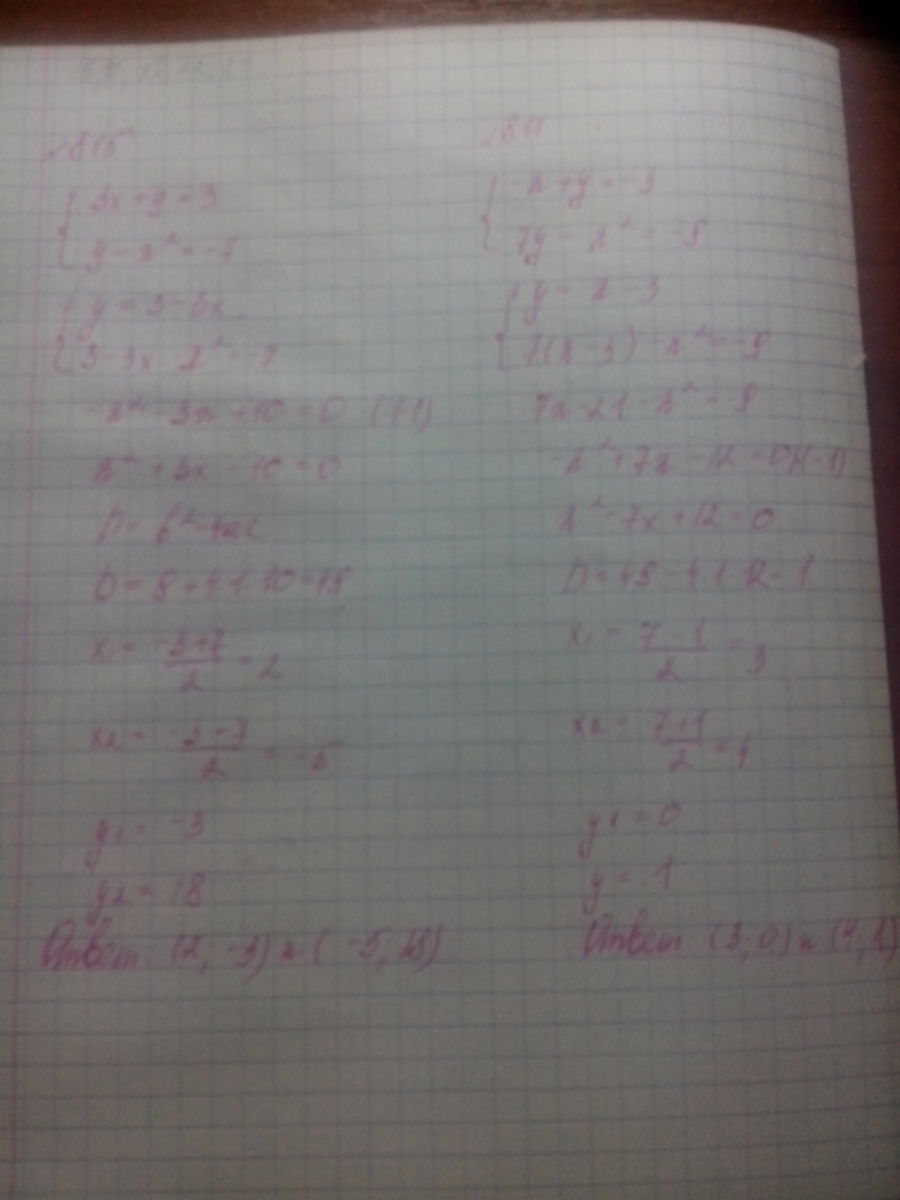 №815
3x + y = 3
y - x² = -7
y = 3 - 3x
3 - 3x - x² = -7
-x² - 3x + 10 = 0 (·(-1))
x² + 3x - 10 = 0
D = b² - 4ac
D = 9 + 4·1·10 = 49
x₁ = (-3+7)/2 = 2
x₂ = (-3-7)/2 = -5
y₁ = -3
y₂ = 18
Ответ (2; -3) и (-5; 18)
-x + y = -3
7y - x² = -9
y = x - 3
7(x-3) - x² = -9
7x - 21 - x² = -9
-x² + 7x - 12 = 0 (·(-1))
x² - 7x + 12 = 0
D = 49 - 4·1·12 = 1
x₁ = (7-1)/2 = 3
x₂ = (7+1)/2 = 4
y₁ = 0
y = 1
Ответ (3; 0) и (4; 1)